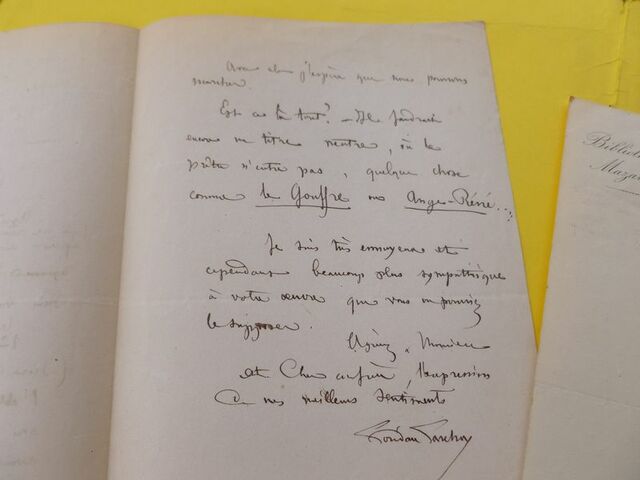 Avec cela j'espère que nous pourrons
marcher.
Est ce là tout? - Il faudrait
encore un titre neutre, où le
prêtre n'entre pas, quelque chose
comme le Gouffre ou Ange-Réné...
Je suis très ennuyeux et
cependant beaucoup plus sympathique
à votre œuvre que vous ne pourriez
le supposer.
Agréez, Monsieur
et Cher confrère, l'expression
de mes meilleurs sentiments
Biblioth
Mazar